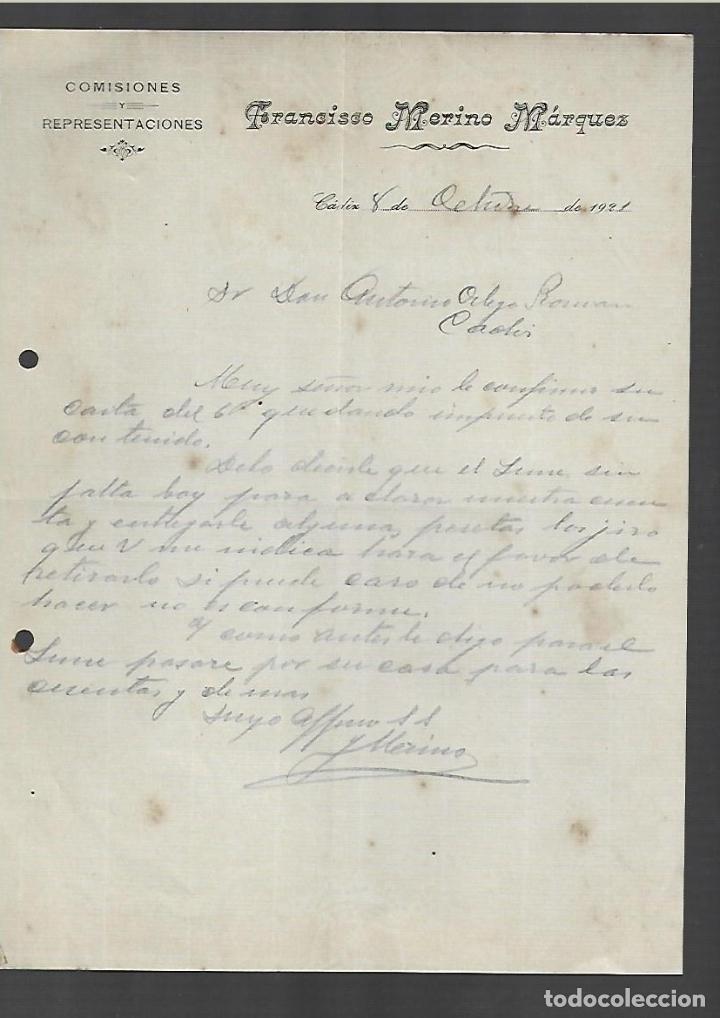 COMISIONES
Y
REPRESENTACIONES
Francisco Merino Márquez
Cádiz 8 de Octubre de 1921
Sr Don Antonio Roman
Cadiz
Muy señor mio le confirmo su
carta del 6 quedando impuesto de su
contenido.
Debo decirle que el Lune sin
falta hoy para aclarar nuestra cuen
ta y entregarle alguna pesetas los jiro
que V me indica hara el favor de
retirarlo si puede caso de no poderlo
hacer no es conforme.
Y como antes le digo para el
Lune pasare por su casa para las
cuentas y demas
Suyo Affmo S S
F Merino
todocoleccion